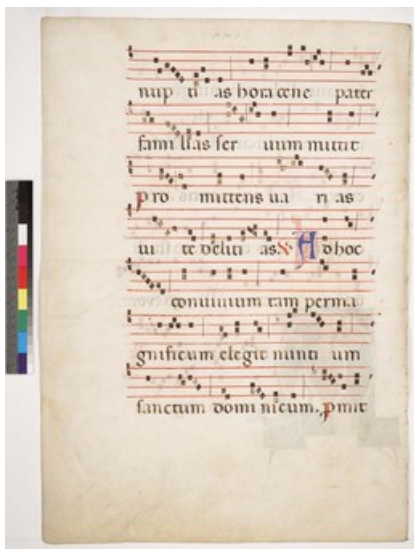 nup ti as hora cene pater
fami lias ser uum mittit
pro mittens ua ri as
ui te deliti as. A d hoc
conuiuium tam perma
gnificum elegit nunti um
sanctum domi nicum. pmit